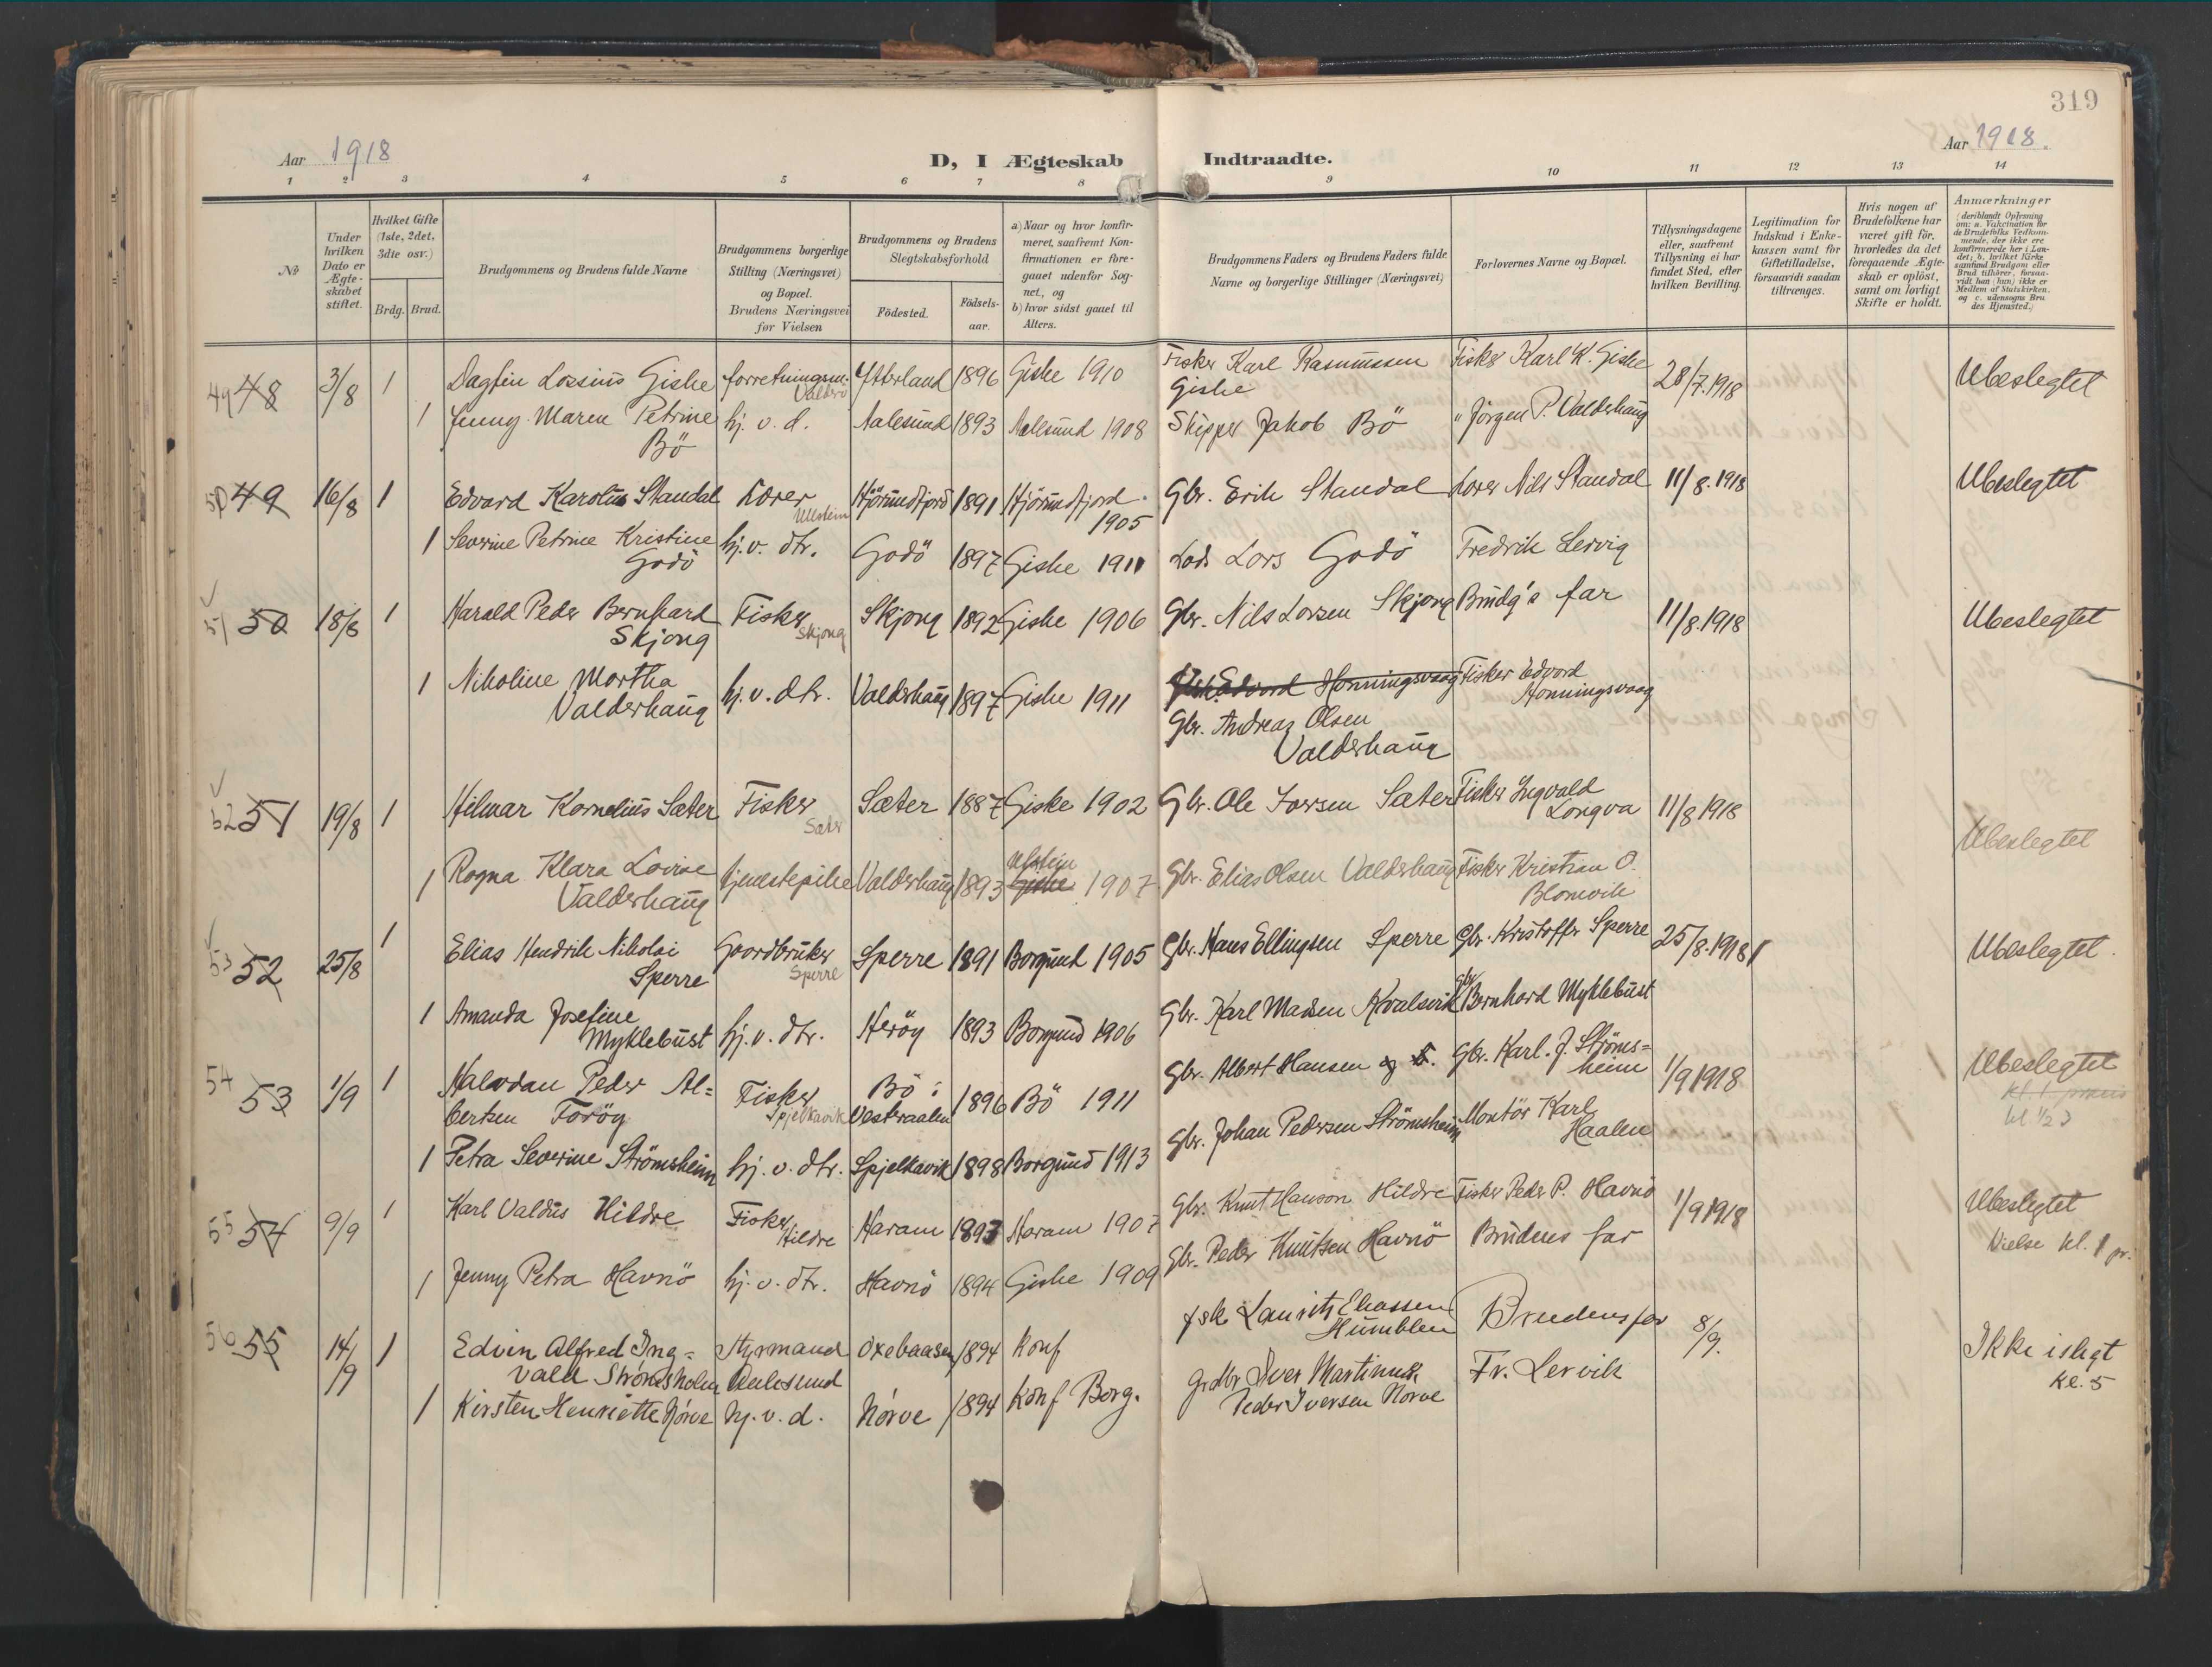 319
Aar 1918
D, I Ægteskab Indtraadte.
Aar 1918.
1 2 3 4 5 6 7 8 9 10 11 12 13 14
No
Under hvilken Dato er Ægte-skabet stiftet.
Hvilket Gifte (1ste, 2det, 3die osv.)
Brdg. Brud.
Brudgommens og Brudens fulde Navne
Brudgommens borgerlige Stilling (Næringsvei) og Bopæl. Brudens Næringsvei før Vielsen
Brudgommens og Brudens Slegtskabsforhold
Fødested. Fødsels-aar.
a) Naar og hvor konfir-meret, saafremt Kon-firmationen er fore-gaaet udenfor Sog-net, og
b) hvor sidst gaaet til Alters.
Brudgommens Faders og Brudens Faders fulde Navne og borgerlige Stillinger (Næringsvei)
Forlovernes Navne og Bopæl.
Tillysningsdagene eller, saafremt Tillysning ei har fundet Sted, efter hvilken Bevilling.
Legitimation for Indskud i Enke-kassen samt for Giftetilladelse, forsaavidt saadan tiltrænges.
Hvis nogen af Brudefolkene har været gift før, hvorledes da det foregaaende Ægte-skab er opløst, samt om lovligt Skifte er holdt.
Anmærkninger
(deriblandt Oplysning om: a. Vakcination for de Brudefolks Vedkom-mende, der ikke ere konfirmerede her i Lan-det; b. hvilket Kirke-samfund Brudgom eller Brud tilhører, forsaa-vidt han (hun) ikke er Medlem af Statskirken, og c. udensogns Bru-des Hjemsted.)
49 48 3/8 1 Dagfin Lossius Giske forretningsm. Valderö Ytterland 1896 Giske 1910 Fisker Karl Rasmussen Giske Fisker Karl K. Giske 28/7.1918 Ubeslegtet
1 Jenny Maren Petrine Bö hj. v. d. Aalesund 1893 Aalesund 1908 Skipper Jakob Bö " Jörgen P. Valderhaug
50 49 16/8 1 Edvard Karolus Standal Lærer Ulstein Hjörundfjord 1891 Hjörundfjord 1905 Gbr. Erik Standal Lærer Nils Standal 11/8.1918 Ubeslegtet
1 Severine Petrine Kristine Godö hj. v. dtr. Godö 1897 Giske 1911 Lods Lars Godö Fredrik Lervig
51 50 18/8 1 Harald Peder Bernhard Skjong Fisker Skjong Skjong 1892 Giske 1906 Gbr. Nils Larsen Skjong Brudg's far 11/8.1918 Ubeslegtet
1 Nikoline Martha Valderhaug hj. v. dtr. Valderhaug 1897 Giske 1911 Fisk. Edvard Honningsvaag Fisker Edvard Honningsvaag
Gbr. Andreas Olsen Valderhaug
52 51 19/8 1 Hilmar Kornelius Sæter Fisker Sæter Sæter 1887 Giske 1902 Gbr. Ole Iversen Sæter Fisker Ingvald Longva 11/8 1918 Ubeslegtet
1 Ragna Klara Lovise Valderhaug tjenestepike Valderhaug 1893 Giske Ulstein 1907 Gbr. Elias Olsen Valderhaug Fisker Kristian O. Blomvik
53 52 25/8 1 Elias Hendrik Nikolai Sperre Gaardbruker Sperre Sperre 1891 Borgund 1905 Gbr. Hans Ellingsen Sperre Gbr. Kristoffer Sperre 25/8.1918 Ubeslegtet.
1 Amanda Josefine Myklebust hj. v. dtr. Heröy 1893 Borgund 1906 Gbr. Karl Madsen Kvalsvik Gbr. Bernhard Myklebust
54 53 1/9 1 Halvdan Peder Al=bertsen Toröy Fisker Spjelkavik Bö i Vesteraalen 1896 Bö 1911 Gbr. Albert Hansen Gbr. Karl. J. Ströms=heim 1/9 1918 Ubeslegtet
kl. ½ 3
1 Petra Severine Strömsheim hj. v. dtr. Spjelkavik 1898 Borgund 1913 Gbr. Johan Pedersen Strömsheim Montör Karl Haalen
55 54 9/9 1 Karl Valdus Hildre Fisker Hildre Haram 1893 Haram 1907 Gbr. Knut Hanson Hildre Fisker Peder P. Havnö 1/9 1918 Ubeslegtet
Vielse kl. 1 pr.
1 Jenny Petra Havnö hj. v. dtr. Havnö 1894 Giske 1909 Gbr. Peder Knutsen Havnö Brudens far
56 55 14/9 1 Edvin Alfred Ing=vald Strömsholm Styrmand Aalesund Oxebaasen 1894 Konf fsk. Laurits Eliassen Humblen Brudens far 8/9. Ikke i slegt
kl. 5
1 Kirsten Henriette Nörve hj. v. d. Nörve 1894 Konf Borg. grdbr Iver Martinus Peder Iversen Nörve Fr. Lervik